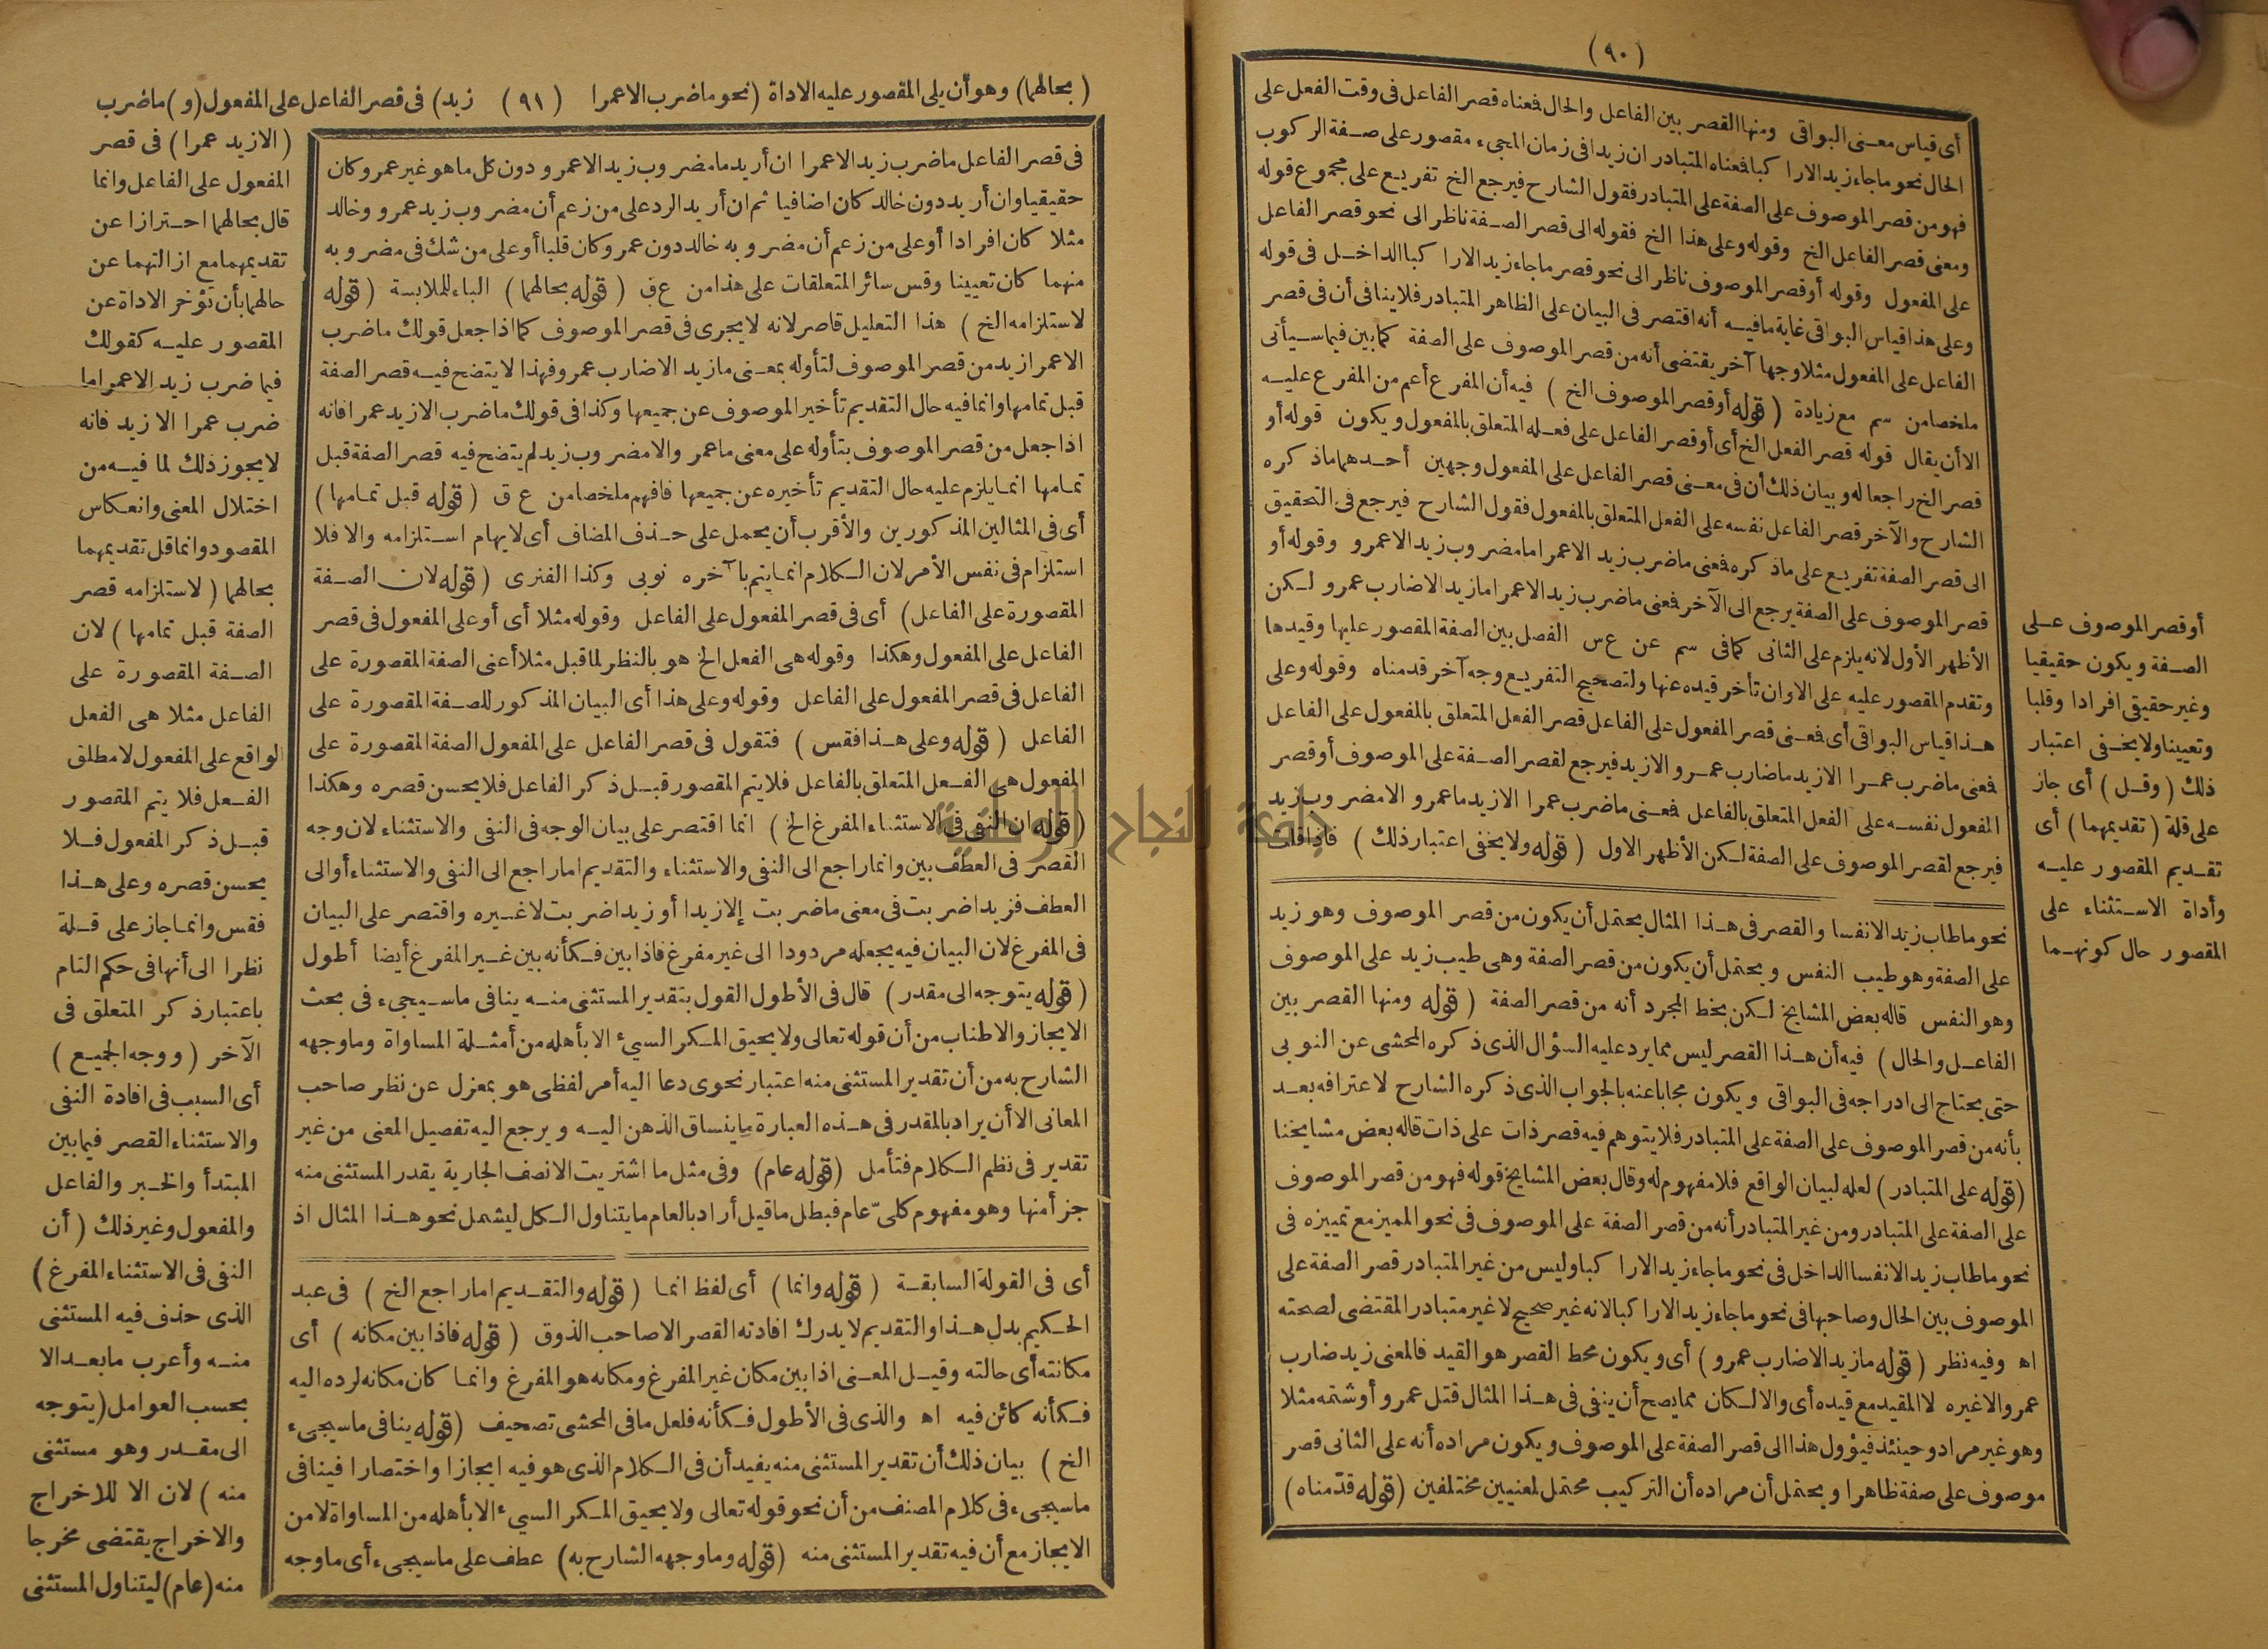 (٩٠)
أى قياس معنى البواقى ومنها القصر بين الفاعل والحال فعناه قصر الفاعل فى وقت الفعل على
الحال نحو ما جاء زيد الارا كبا فعناه المتبادر ان زيدا فى زمان المجىء مقصور على صفة الركوب
فهو من قصر الموصوف على الصفة على المتبادر فقول الشارح فيرجع الخ تفريع على مجموع قوله
ومعنى قصر الفاعل الخ وقوله وعلى هذا الخ فقوله الى قصر الصفة ناظر الى نحو قصر الفاعل
على المفعول وقوله أو قصر الموصوف ناظر الى نحو قصر ما جاء زيد الارا كبا الداخل فى قوله
وعلى هذا قياس البواقى غاية ما فيه أنه اقتصر فى البيان على الظاهر المتبادر فلا ينافى أن فى قصر
الفاعل على المفعول مثلا وجها آخر يقتضى أنه من قصر الموصوف على الصفة كما بين فيما سيأتى
ملخصا من سم مع زيادة (قوله أو قصر الموصوف الخ) فيه أن المفرع أعم من المفرع عليه
الا أن يقال قوله قصر الفعل الخ أى أو قصر الفاعل على فعله المتعلق بالمفعول ويكون قوله أو
قصر الخ راجعا له وبيان ذلك أن فى معنى قصر الفاعل على المفعول وجهين أحدهما ما ذكره
الشارح والآخر قصر الفاعل نفسه على الفعل المتعلق بالمفعول فقول الشارح فيرجع فى التحقيق
الى قصر الصفة تفريع على ما ذكره فعنى ما ضرب زيد الا عمرا ما مضروب زيد الا عمرو وقوله أو
قصر الموصوف على الصفة يرجع الى الآخر فعنى ما ضرب زيد الا عمرا ما زيد الا ضارب عمرو لكن
الأظهر الأول لانه يلزم على الثانى كما فى سم عن ع س الفصل بين الصفة المقصور عليها وقيدها
وتقدم المقصور عليه على الا وان تأخر قيده عنها ولتصحيح التفريع وجه آخر قدمناه وقوله وعلى
هذا قياس البواقى أى فعنى قصر المفعول على الفاعل قصر الفعل المتعلق بالمفعول على الفاعل
فعنى ما ضرب عمرا الا زيد ما ضارب عمرو الا زيد فيرجع لقصر الصفة على الموصوف أو قصر
المفعول نفسه على الفعل المتعلق بالفاعل فعنى ما ضرب عمرا الا زيد ما عمرو الا مضروب زيد
فيرجع لقصر الموصوف على الصفة لكن الأظهر الاول (قوله ولا يخفى اعتبار ذلك) فاذا قلت
أو قصر الموصوف على
الصفة ويكون حقيقيا
وغير حقيقى افرادا وقلبا
وتعيينا ولا يخفى اعتبار
ذلك (وقل) أى جاز
على قلة (تقديمهما) أى
تقديم المقصور عليه
وأداة الاستثناء على
المقصور حال كونهما
نحو ما طاب زيد الا نفسا والقصر فى هذا المثال يحتمل أن يكون من قصر الموصوف وهو زيد
على الصفة وهو طيب النفس ويحتمل أن يكون من قصر الصفة وهى طيب زيد على الموصوف
وهو النفس قاله بعض المشايخ لكن بخط المجرد أنه من قصر الصفة (قوله ومنها القصر بين
الفاعل والحال) فيه أن هذا القصر ليس مما يرد عليه السؤال الذى ذكره المحشى عن النوبى
حتى يحتاج الى ادراجه فى البواقى ويكون مجابا عنه بالجواب الذى ذكره الشارح لاعترافه بعد
بأنه من قصر الموصوف على الصفة على المتبادر فلا يتوهم فيه قصر ذات على ذات قاله بعض مشايخنا
(قوله على المتبادر) لعله لبيان الواقع فلا مفهوم له وقال بعض المشايخ قوله فهو من قصر الموصوف
على الصفة على المتبادر ومن غير المتبادر أنه من قصر الصفة على الموصوف فى نحو المميز مع تمييزه فى
نحو ما طاب زيد الا نفسا الداخل فى نحو ما جاء زيد الارا كبا وليس من غير المتبادر قصر الصفة على
الموصوف بين الحال وصاحبها فى نحو ما جاء زيد الارا كبا لانه غير صحيح لا غير متبادر المقتضى لصحته
اه وفيه نظر (قوله ما زيد الا ضارب عمرو) أى ويكون محط القصر هو القيد فالمعنى زيد ضارب
عمرو الا غيره لا المقيد مع قيده أى والا لكان مما يصح أن ينفى فى هذا المثال قتل عمرو أو شتمه مثلا
وهو غير مراد وحينئذ فيؤول هذا الى قصر الصفة على الموصوف ويكون مراده أنه على الثانى قصر
موصوف على صفة ظاهرا ويحتمل أن مراده أن التركيب محتمل لمعنيين مختلفين (قوله قدّمناه)
(بحالهما) وهو أن يلى المقصور عليه الاداة (نحو ما ضرب الا عمرا (٩١) زيد) فى قصر الفاعل على المفعول (و) ما ضرب
(الا زيد عمرا) فى قصر
المفعول على الفاعل وانما
قال بحالهما احترازا عن
تقديمهما مع ازالتهما عن
حالهما بأن تؤخر الاداة عن
المقصور عليه كقولك
فيما ضرب زيد الا عمرا ما
ضرب عمرا الا زيد فانه
لا يجوز ذلك لما فيه من
اختلال المعنى وانعكاس
المقصود وانما قل تقديمهما
بحالهما (لاستلزامه قصر
الصفة قبل تمامها) لان
الصفة المقصورة على
الفاعل مثلا هى الفعل
الواقع على المفعول لا مطلق
الفعل فلا يتم المقصور
قبل ذكر المفعول فلا
يحسن قصره وعلى هذا
فقس وانما جاز على قلة
نظرا الى أنها فى حكم التام
باعتبار ذكر المتعلق فى
الآخر (ووجه الجميع)
أى السبب فى افادة النفى
والاستثناء القصر فيما بين
المبتدأ والخبر والفاعل
والمفعول وغير ذلك (أن
النفى فى الاستثناء المفرغ)
الذى حذف فيه المستثنى
منه وأعرب ما بعد الا
بحسب العوامل (يتوجه
الى مقدر وهو مستثنى
منه) لان الا للاخراج
والاخراج يقتضى مخرجا
منه (عام) ليتناول المستثنى
فى قصر الفاعل ما ضرب زيد الا عمرا ان أريد ما مضروب زيد الا عمرو دون كل ما هو غير عمرو كان
حقيقيا وان أريد دون خالد كان اضافيا ثم ان أريد الرد على من زعم أن مضروب زيد عمرو وخالد
مثلا كان افرادا أو على من زعم أن مضروبه خالد دون عمرو كان قلبا أو على من شك فى مضروبه
منهما كان تعيينا وقس سائر المتعلقات على هذا من ع ق (قوله بحالهما) الباء للملابسة (قوله
لاستلزامه الخ) هذا التعليل قاصر لانه لا يجرى فى قصر الموصوف كما اذا جعل قولك ما ضرب
الا عمرا زيد من قصر الموصوف لتأوله بمعنى ما زيد الا ضارب عمرو فهذا لا يتضح فيه قصر الصفة
قبل تمامها وانما فيه حال التقديم تأخير الموصوف عن جميعها وكذا فى قولك ما ضرب الا زيد عمرا فانه
اذا جعل من قصر الموصوف بتأوله على معنى ما عمر والا مضروب زيد لم يتضح فيه قصر الصفة قبل
تمامها انما يلزم عليه حال التقديم تأخيره عن جميعها فافهم ملخصا من ع ق (قوله قبل تمامها)
أى فى المثالين المذكورين والأقرب أن يحمل على حذف المضاف أى لايهام استلزامه والا فلا
استلزام فى نفس الأمر لان الكلام انما يتم بآخره نوبى وكذا الفنرى (قوله لان الصفة
المقصورة على الفاعل) أى فى قصر المفعول على الفاعل وقوله مثلا أى أو على المفعول فى قصر
الفاعل على المفعول وهكذا وقوله هى الفعل الخ هو بالنظر لما قبل مثلا أعنى الصفة المقصورة على
الفاعل فى قصر المفعول على الفاعل وقوله وعلى هذا أى البيان المذكور للصفة المقصورة على
الفاعل (قوله وعلى هذا فقس) فتقول فى قصر الفاعل على المفعول الصفة المقصورة على
المفعول هى الفعل المتعلق بالفاعل فلا يتم المقصور قبل ذكر الفاعل فلا يحسن قصره وهكذا
(قوله ان النفى فى الاستثناء المفرغ الخ) انما اقتصر على بيان الوجه فى النفى والاستثناء لان وجه
القصر فى العطف بين وانما راجع الى النفى والاستثناء والتقديم اما راجع الى النفى والاستثناء أو الى
العطف فزيدا ضربت فى معنى ما ضربت إلا زيدا أو زيدا ضربت لا غيره واقتصر على البيان
فى المفرغ لان البيان فيه يجعله مردودا الى غير مفرغ فاذا بين فكأنه بين غير المفرغ أيضا أطول
(قوله يتوجه الى مقدر) قال فى الأطول القول بتقدير المستثنى منه ينافى ما سيجىء فى بحث
الايجاز والاطناب من أن قوله تعالى ولا يحيق المكر السيئ الا بأهله من أمثلة المساواة وما وجهه
الشارح به من أن تقدير المستثنى منه اعتبار نحوى دعا اليه أمر لفظى هو بمعزل عن نظر صاحب
المعانى الا أن يراد بالمقدر فى هذه العبارة ما ينساق الذهن اليه ويرجع اليه تفصيل المعنى من غير
تقدير فى نظم الكلام فتأمل (قوله عام) وفى مثل ما اشتريت الا نصف الجارية يقدر المستثنى منه
جزأ منها وهو مفهوم كلىّ عام فبطل ما قيل أراد بالعام ما يتناول الكل ليشمل نحو هذا المثال اذ
أى فى القولة السابقة (قوله وانما) أى لفظ انما (قوله والتقديم اما راجع الخ) فى عبد
الحكيم بدل هذا والتقديم لا يدرك افادته القصر الا صاحب الذوق (قوله فاذا بين مكانه) أى
مكانته أى حالته وقيل المعنى اذا بين مكان غير المفرغ ومكانه هو المفرغ وانما كان مكانه لرده اليه
فكأنه كائن فيه اه والذى فى الأطول فكأنه فلعل ما فى المحشى تصحيف (قوله ينافى ما سيجىء
الخ) بيان ذلك أن تقدير المستثنى منه يفيد أن فى الكلام الذى هو فيه ايجازا واختصارا فينافى
ما سيجىء فى كلام المصنف من أن نحو قوله تعالى ولا يحيق المكر السيئ الا بأهله من المساواة لا من
الايجاز مع أن فيه تقدير المستثنى منه (قوله وما وجهه الشارح به) عطف على ما سيجىء أى ما وجه
جامعة النجاح الوطنية